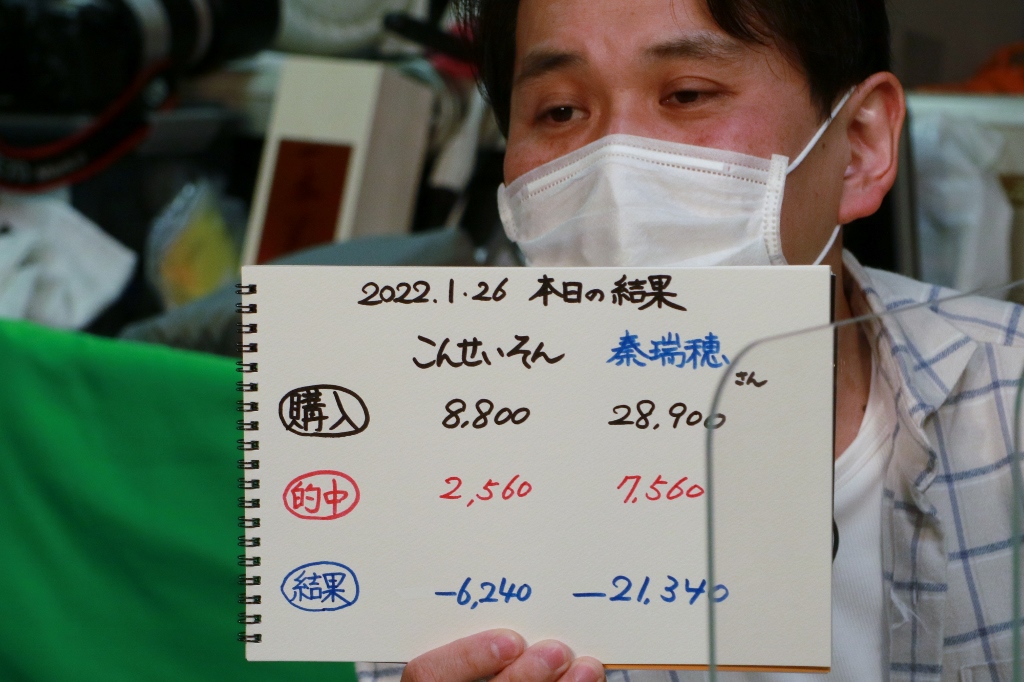 2022.1.26 本日の結果
こんせいそん 秦瑞穂さん
購入 8,800 28,900
的中 2,560 7,560
結果 -6,240 -21,340